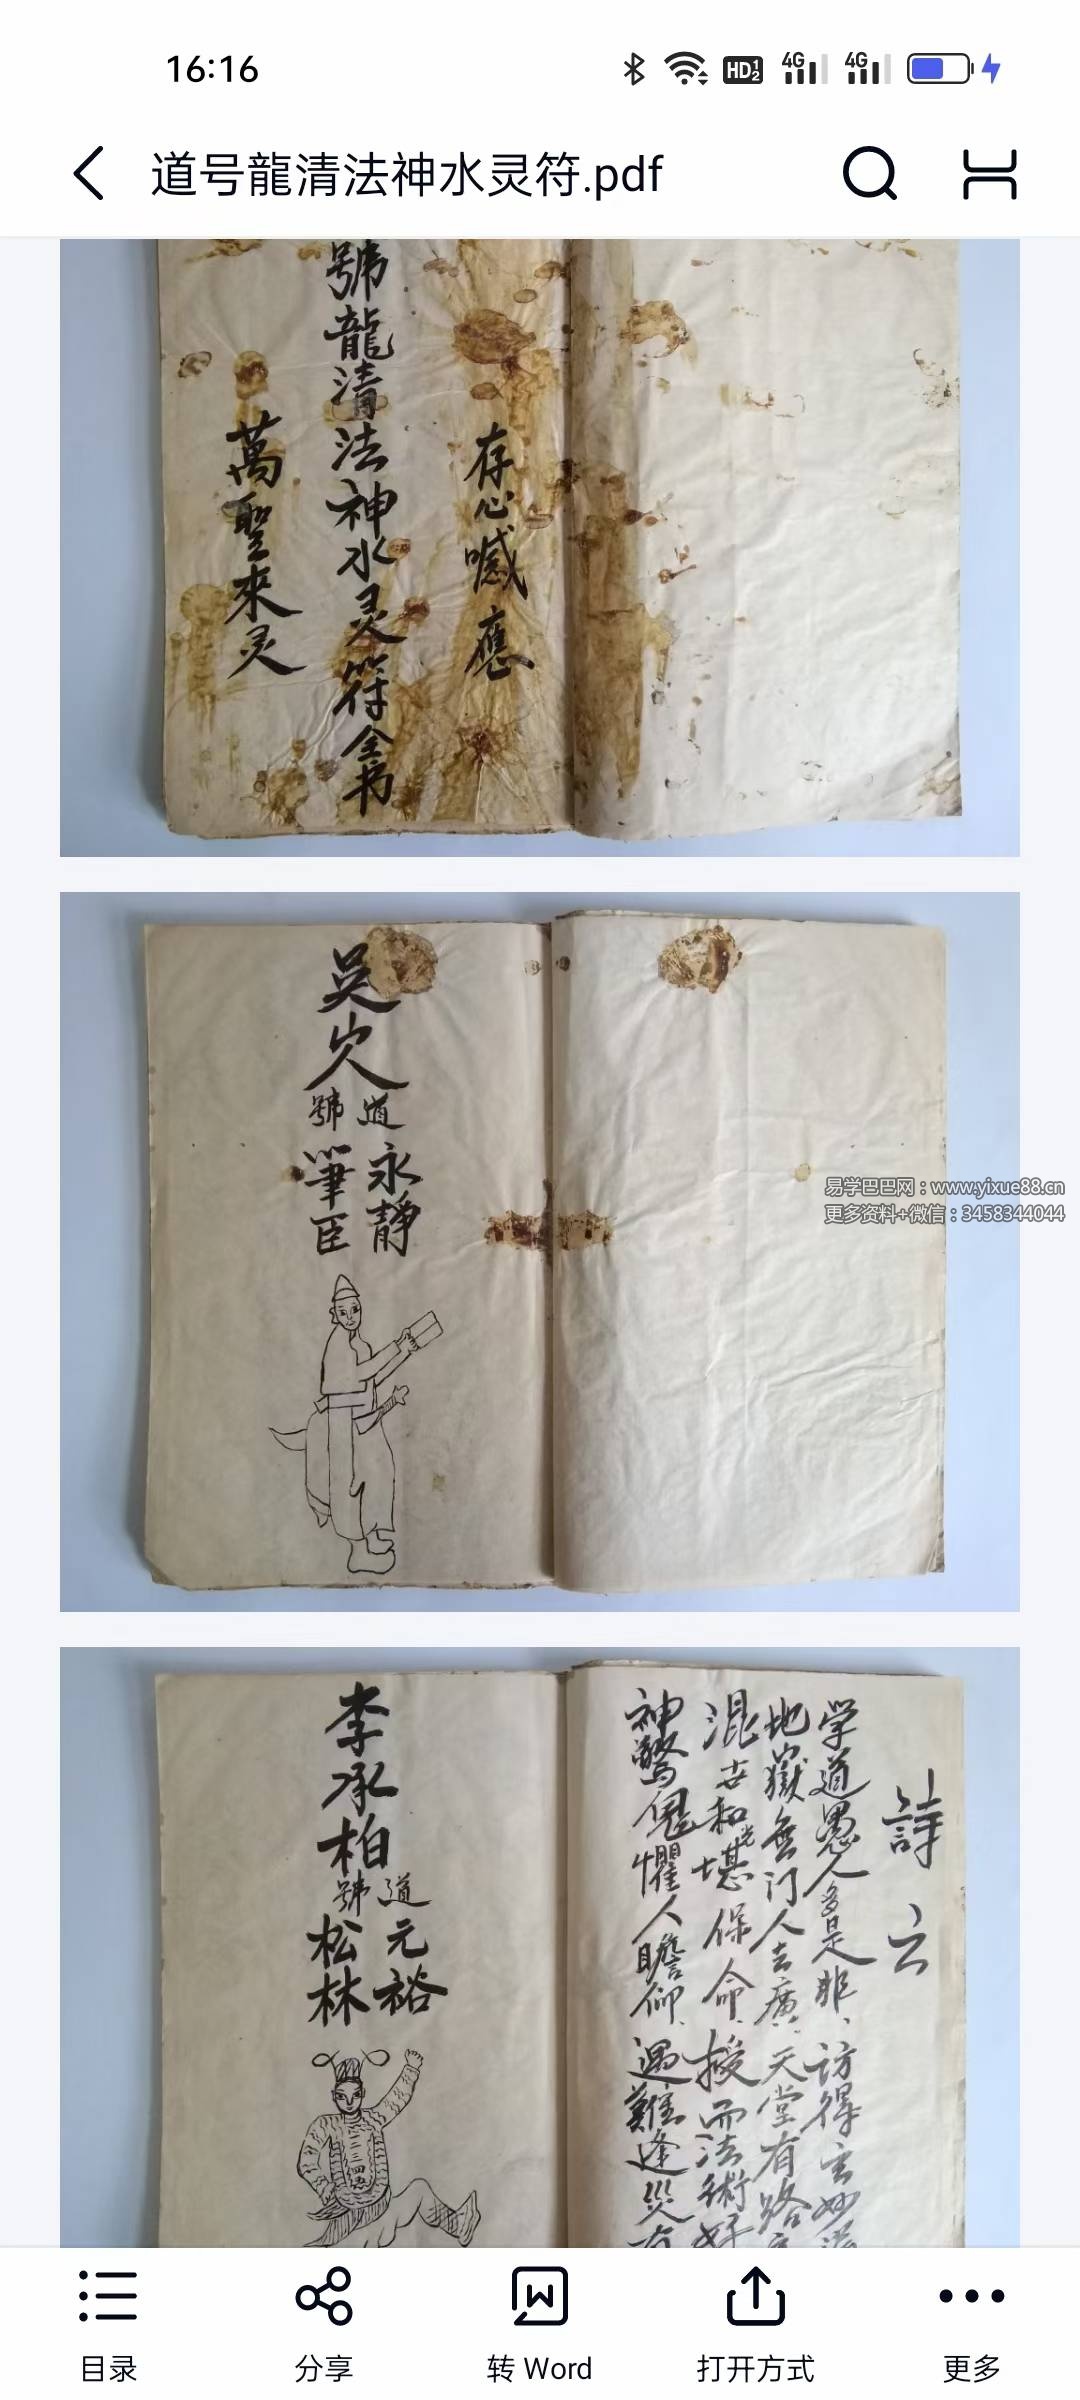 16:16
HD 1 2
4G
4G
道号龍清法神水灵符.pdf
存心喊應
號龍清法神水灵符全书
萬聖來灵
吴
道號
永靜
筆臣
易学巴巴网：www.yixue88.cn
更多资料+微信：3458344044
詩云
学道愚人多是非、访得玄妙
地嶽無门人去廣、天堂有路
混世和光堪保命、授而法術好
神驚鬼懼人瞻仰、遇難逢災有
李承柏
道號
元裕
松林
目录
分享
转 Word
打开方式
更多